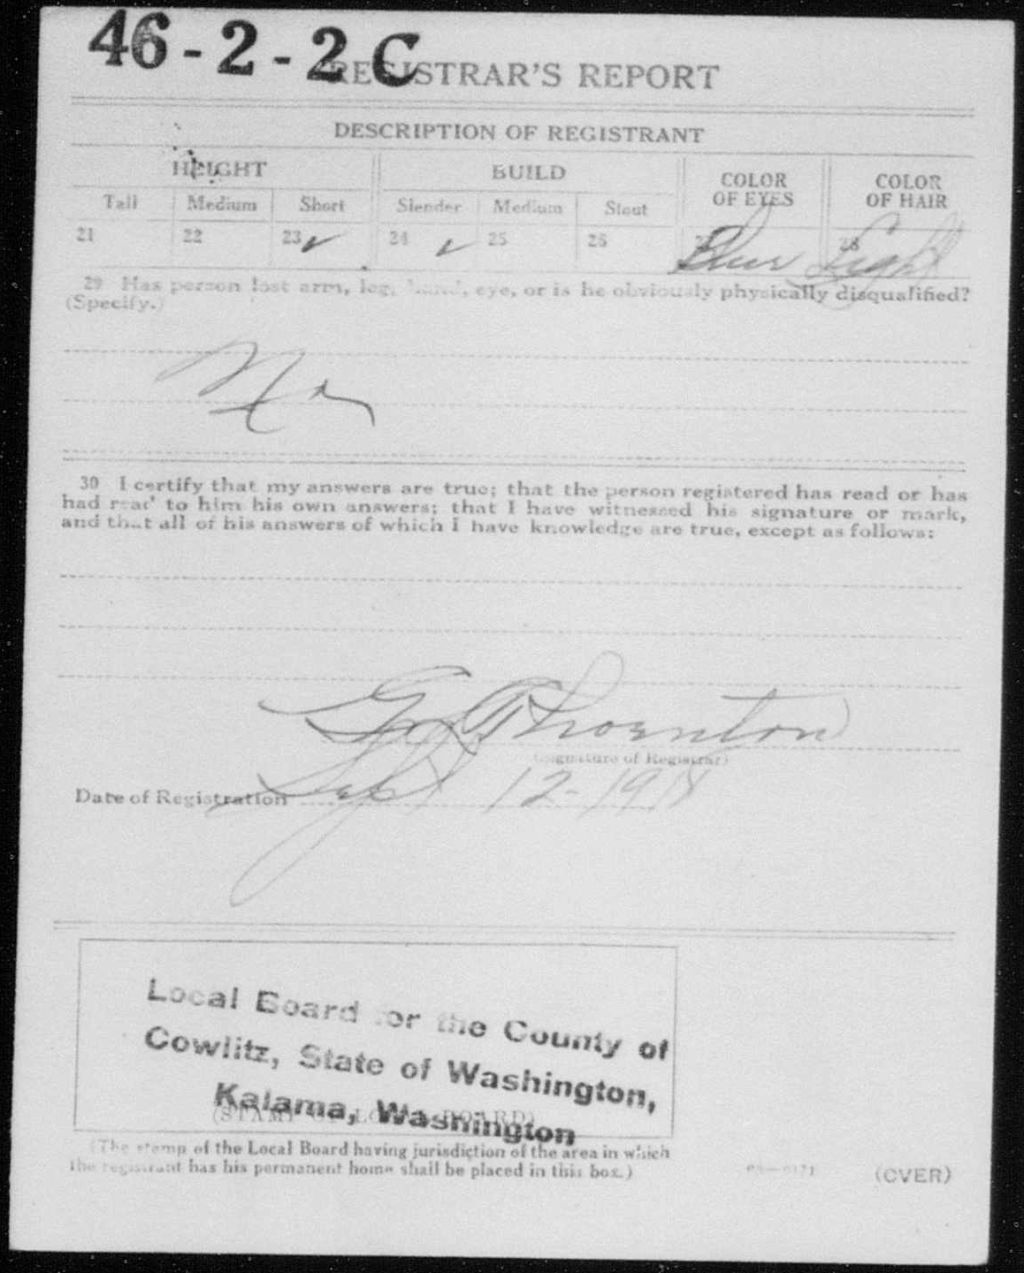 46-2-2 C
REGISTRAR'S REPORT
DESCRIPTION OF REGISTRANT
HEIGHT BUILD COLOR OF EYES COLOR OF HAIR
Tall Medium Short Slender Medium Stout
21 22 23 ✓ 24 ✓ 25 26 27 Blue 28 Light
29 Has person lost arm, leg, hand, eye, or is he obviously physically disqualified?
(Specify.)
No
30 I certify that my answers are true; that the person registered has read or has
had read to him his own answers; that I have witnessed his signature or mark,
and that all of his answers of which I have knowledge are true, except as follows:
Thornton
(Signature of Registrar)
Date of Registration Sept 12-1918
Local Board for the County of
Cowlitz, State of Washington,
Kalama, Washington
(STAMP OF LOCAL BOARD)
(The stamp of the Local Board having jurisdiction of the area in which
the registrant has his permanent home shall be placed in this box.)
(OVER)